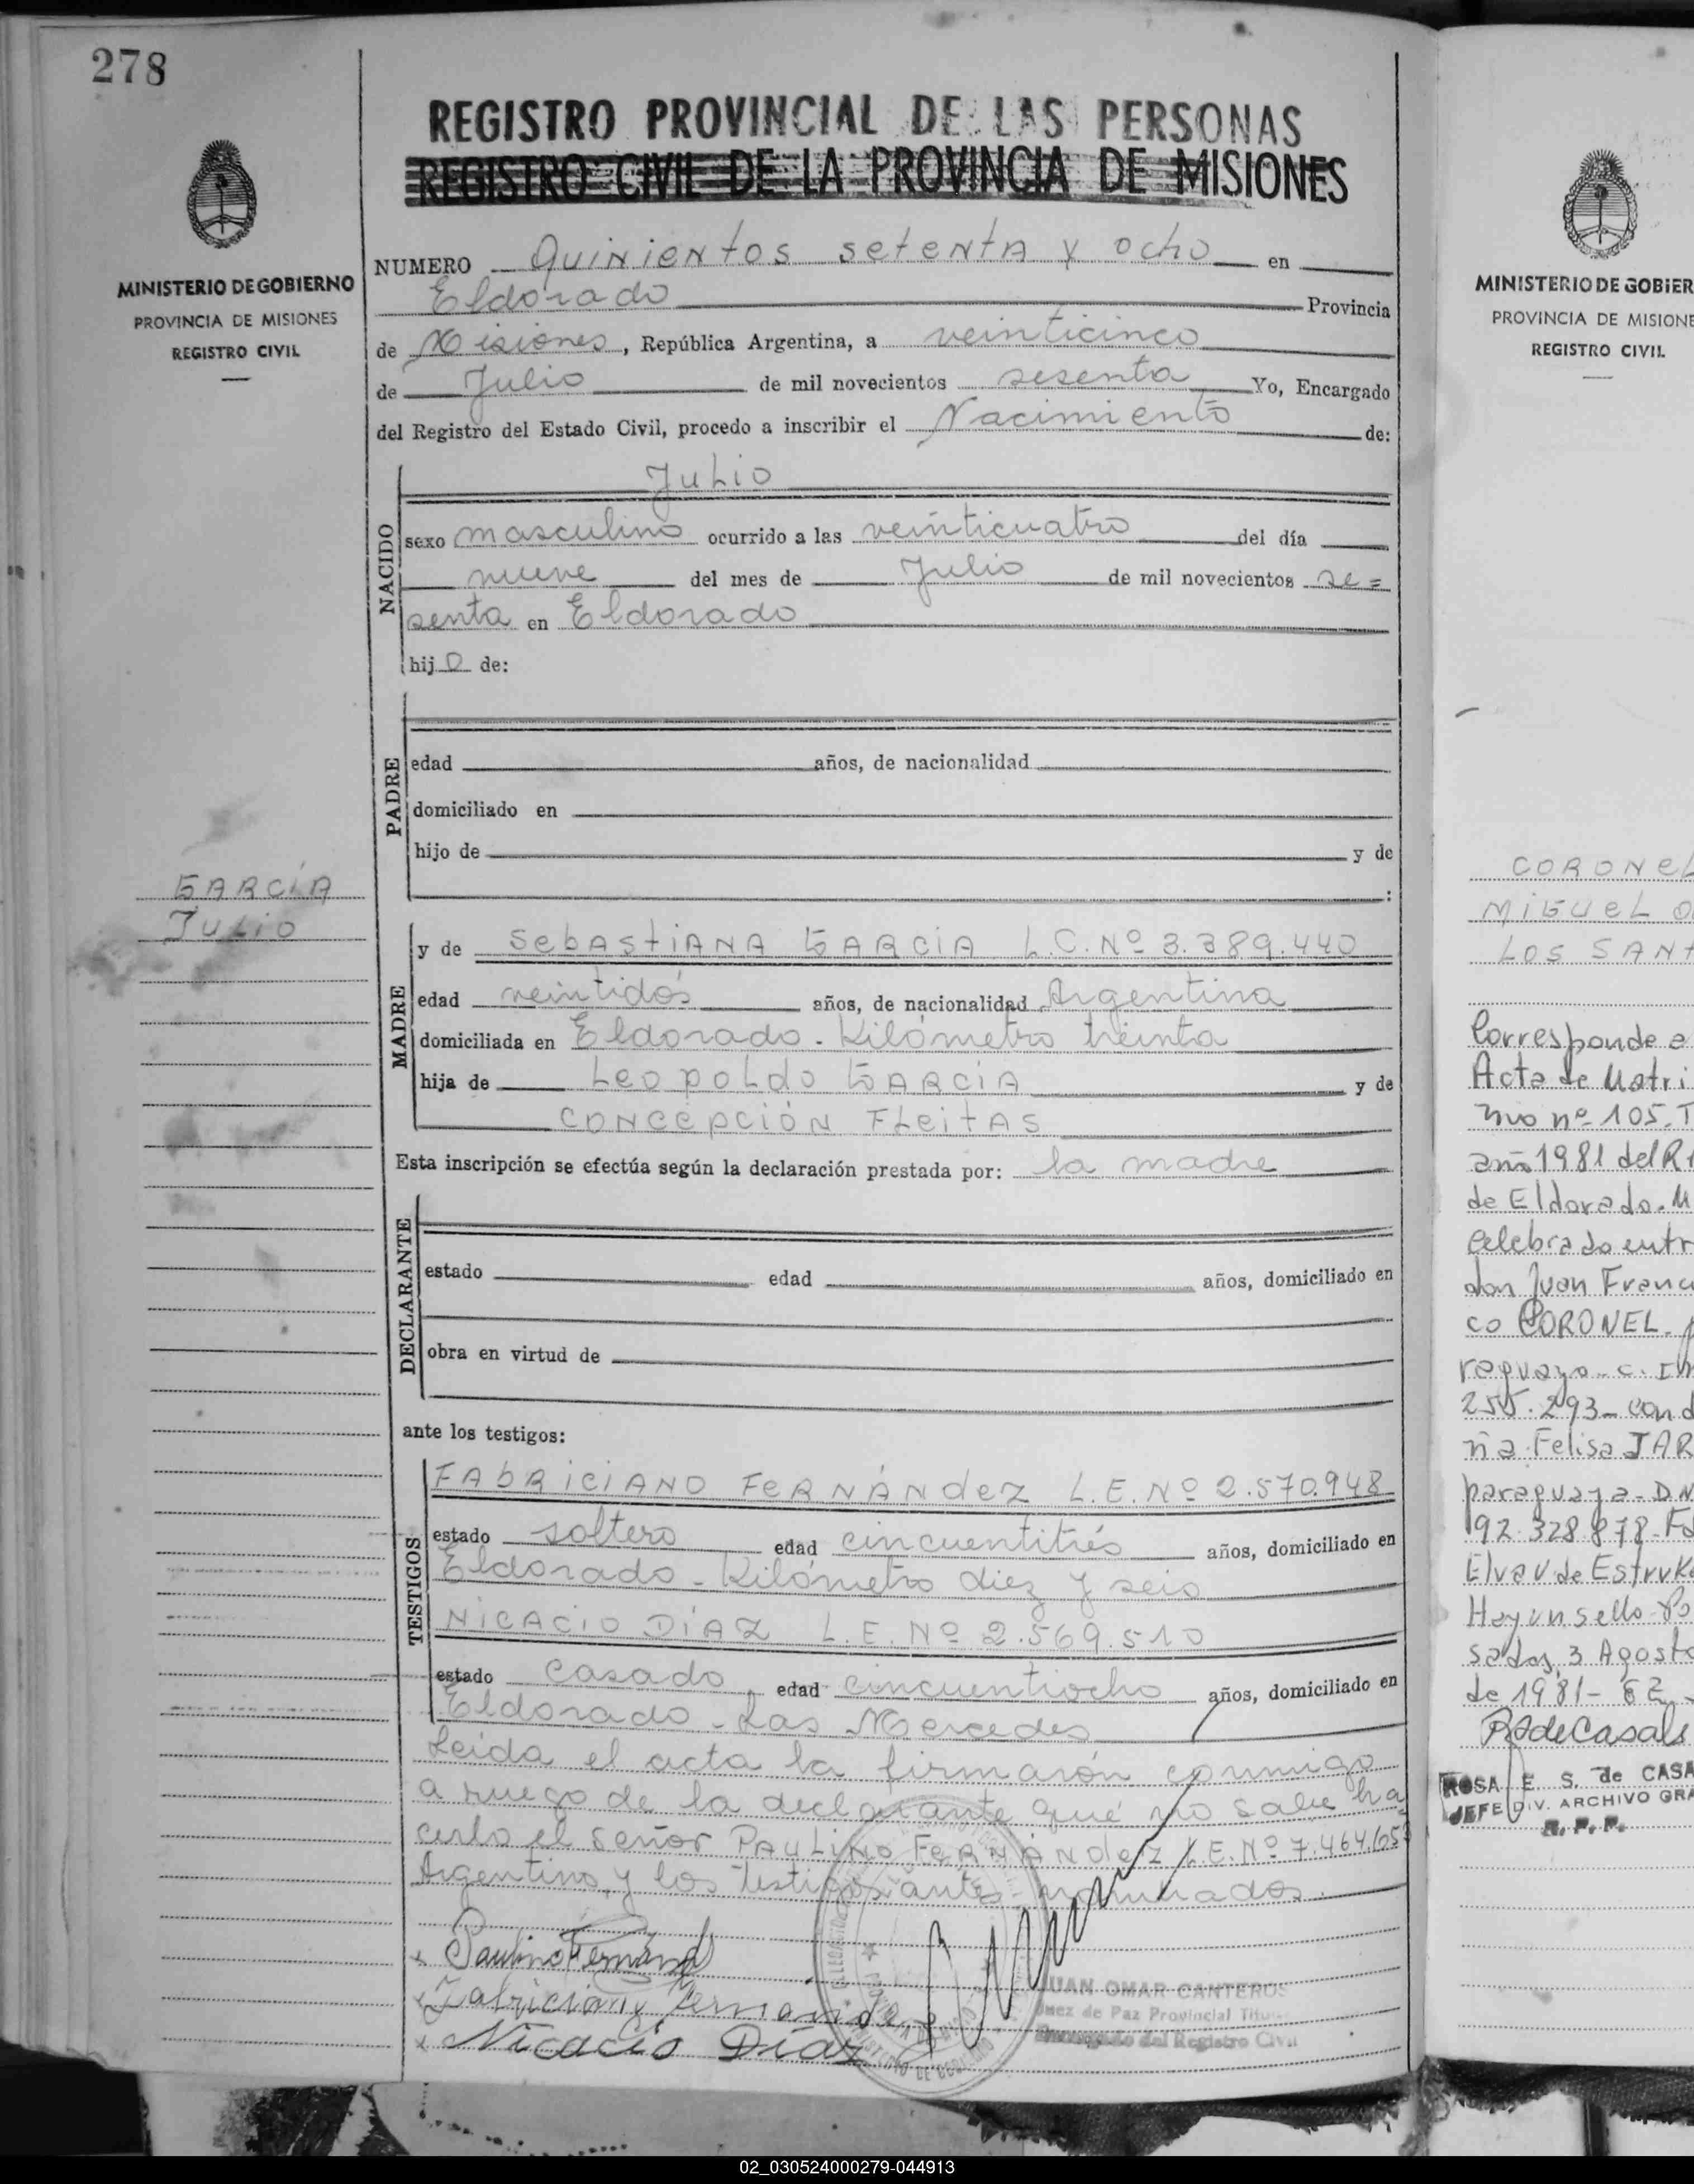 278
REGISTRO PROVINCIAL DE LAS PERSONAS
REGISTRO CIVIL DE LA PROVINCIA DE MISIONES
MINISTERIO DE GOBIERNO
PROVINCIA DE MISIONES
REGISTRO CIVIL
NUMERO Quinientos setenta y ocho en
Eldorado Provincia
de Misiones, República Argentina, a veinticinco
de Julio de mil novecientos sesenta Yo, Encargado
del Registro del Estado Civil, procedo a inscribir el Nacimiento de:
NACIDO
Julio
sexo masculino ocurrido a las veinticuatro del día
nueve del mes de Julio de mil novecientos se=
senta en Eldorado
hijo de:
PADRE
edad años, de nacionalidad
domiciliado en
hijo de y de
:
GARCÍA
Julio
MADRE
y de SebAstiANA GARCÍA L.C.Nº 3.389.440
edad veintidós años, de nacionalidad Argentina
domiciliada en Eldorado - Kilómetro treinta
hija de Leopoldo GARCÍA y de
CONCepCIÓN FLeitAS
Esta inscripción se efectúa según la declaración prestada por: la madre
DECLARANTE
estado edad años, domiciliado en
obra en virtud de
ante los testigos:
TESTIGOS
FAbRiCiANO FeRNÁNdez L.E.Nº 2.570.948
estado soltero edad cincuentitrés años, domiciliado en
Eldorado - Kilómetro diez y seis
NiCACiO DÍAZ L.E.Nº 2.569.510
estado casado, edad cincuentiocho años, domiciliado en
Eldorado - Las Mercedes
Leida el acta la firmarón conmigo
a ruego de la declarante qué no sabe ha
cerlo el señor PAuLiNO FeRNÁNdez L.E.Nº 7.464.653
Argentino, y los testigos antes nominados.
x Paulino Fernand
x Fabriciano Fernandez
x Nicacio Díaz
JUAN OMAR CANTEROS
Juez de Paz Provincial Titu
Encargado del Registro Civil
MINISTERIO DE GOBIER
PROVINCIA DE MISIONE
REGISTRO CIVIL
CORONEL
MiGUeL
LOS SANT
Corresponde a
Acta de Matri
nio nº 105. T
año 1981 del R
de Eldorado. M
celebrado entr
don Juan Franc
co CORONEL. p
raguayo - c. I
255.293 - con d
ña Felisa JAR
paraguaya - D.N
92.328.878 - Fd
Elva V. de Estruk
Hay un sello - Po
sadas, 3 Agosto
de 1981 -
R S de Casals
ROSA E. S. de CASA
JEFE DIV. ARCHIVO GRA
R. P. P.
02_030524000279-044913